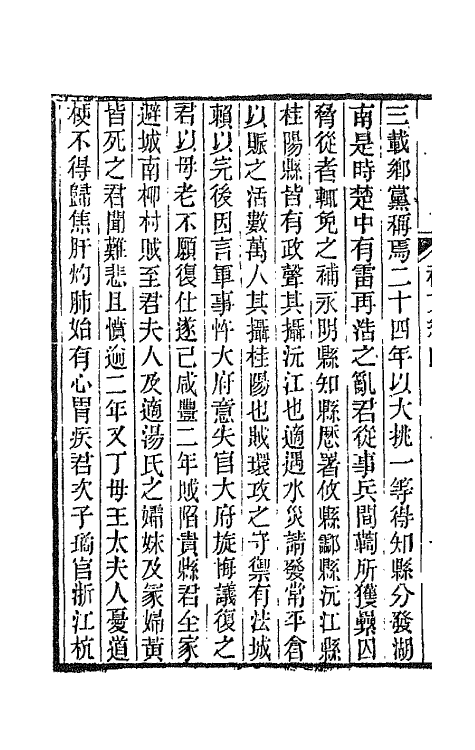 三載鄉黨稱焉二十四年以大挑一等得知縣分發湖
南是時楚中有雷再浩之亂君從事兵間鞫所獲纍囚
脅從者輒免之補永明縣知縣歷署攸縣酃縣沅江縣
桂陽縣皆有政聲其攝沅江也適遇水災請發常平倉
以賑之活數萬人其攝桂陽也賊環攻之守禦有法城
賴以完後因言軍事忤大府意失官大府旋悔議復之
君以母老不願復仕遂已咸豐二年賊陷貴縣君全家
避城南柳村賊至君夫人及適湯氏之孀妹及冢婦黃
皆死之君聞難悲且憤逾二年又丁母王太夫人憂道
梗不得歸焦肝灼肺始有心胃疾君次子璚官浙江杭